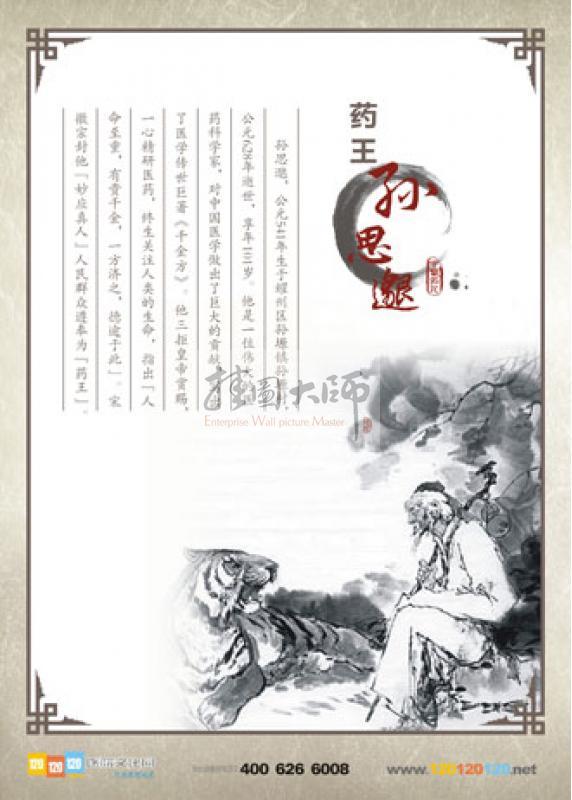 药王
孙思邈
孙思邈，公元541年生于耀州区孙塬镇孙塬村，
公元682年逝世，享年141岁。他是一位伟大的医
药科学家，对中国医学做出了巨大的贡献，出
了医学传世巨著《千金方》。他三拒皇帝赏赐，
一心精研医药，终生关注人类的生命，指出「人
命至重，有贵千金，一方济之，德逾于此」。宋
徽宗封他「妙应真人」人民群众遵奉为「药王」。
挂图大师
Enterprise Wall picture Master
120 120 120
400 626 6008
www.120120120.net